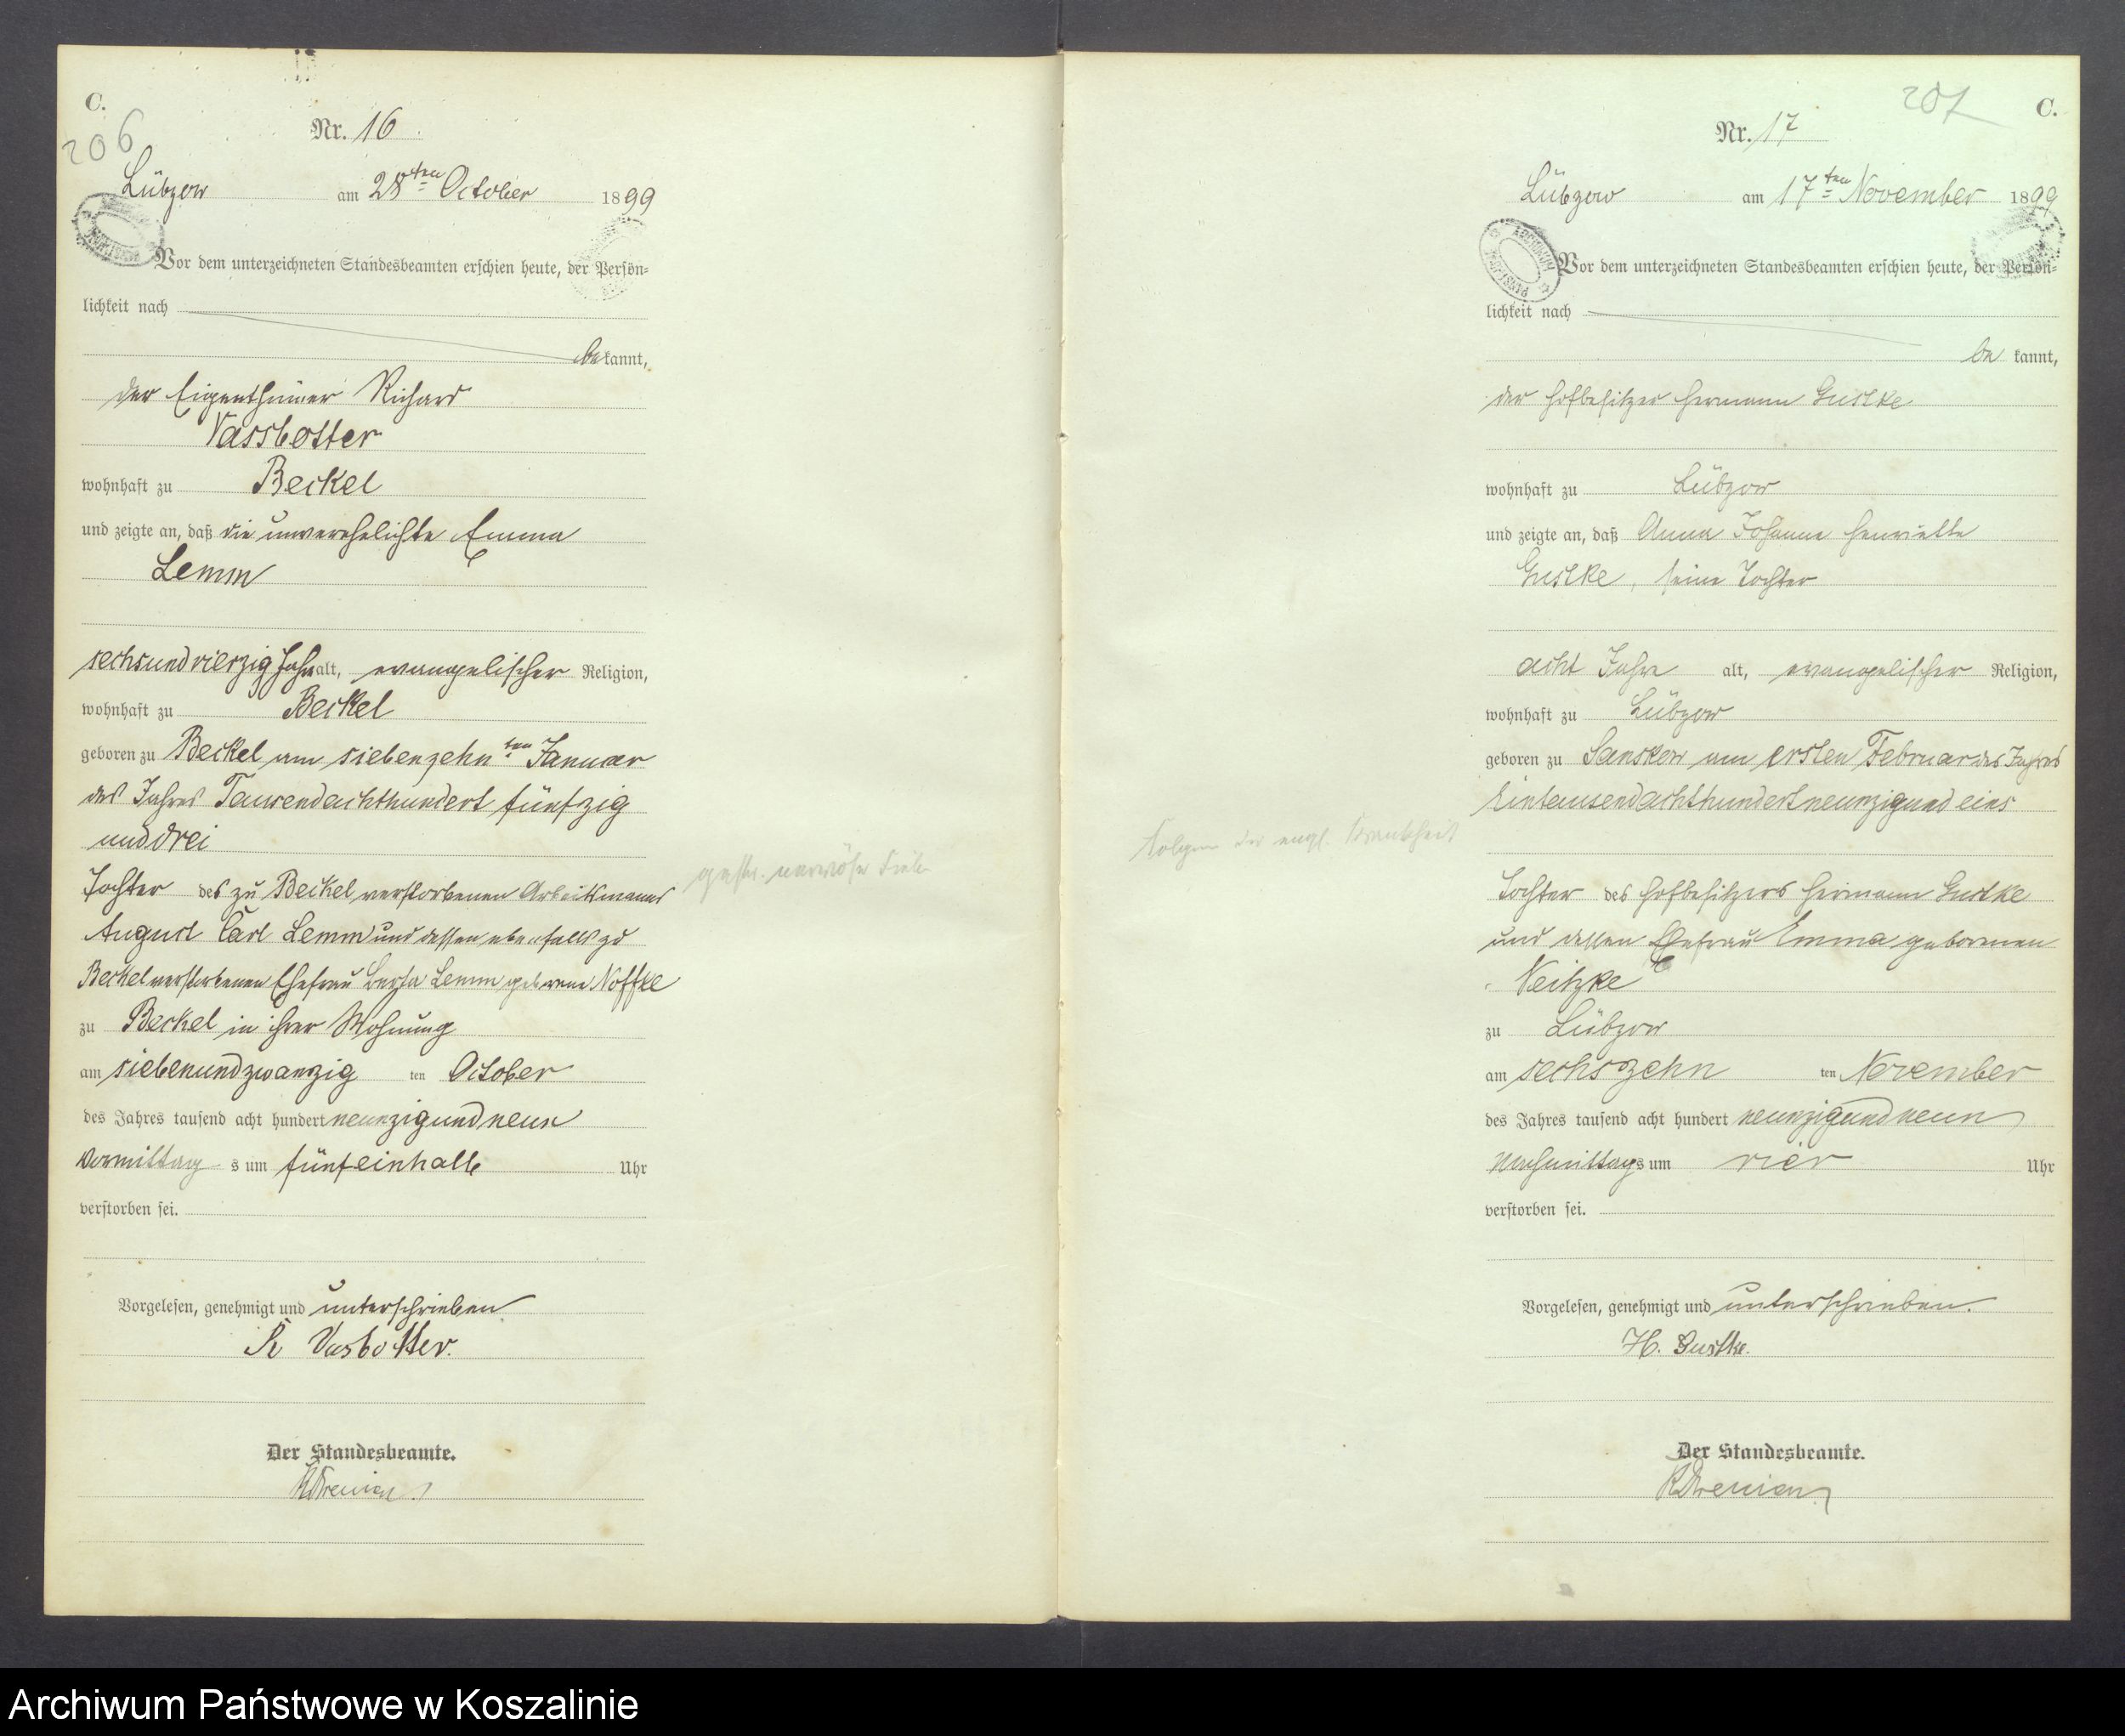 C.
206
Nr. 16
Lübzow am 28ten October 1899
Vor dem unterzeichneten Standesbeamten erschien heute, der Persön=
lichkeit nach
bekannt,
der Eigenthümer Richard
Vassbotter
wohnhaft zu Beckel
und zeigte an, daß die unverehelichte Emma
Lemm
sechsundvierzig Jahre alt, evangelischer Religion,
wohnhaft zu Beckel
geboren zu Beckel am siebenzehnten Januar
des Jahres Tausendachthundert fünfzig
und drei
Tochter des zu Beckel verstorbenen Arbeitsmanns
August Carl Lemm und dessen ebenfalls zu
Beckel verstorbenen Ehefrau Bertha Lemm geborene Noffke
zu Beckel in ihrer Wohnung
am siebenundzwanzig ten October
des Jahres tausend acht hundert neunzigundneun
Vormittags um fünfeinhalb Uhr
verstorben sei.
Vorgelesen, genehmigt und unterschrieben
R Vasbotter.
Der Standesbeamte.
gastr. nervöses Fieber
207
C.
Nr. 17
Lübzow am 17ten November 1899
Vor dem unterzeichneten Standesbeamten erschien heute, der Persön=
lichkeit nach
bekannt,
der Hofbesitzer Hermann Gustke
wohnhaft zu Lübzow
und zeigte an, daß Anna Johanne Henriette
Gustke, seine Tochter
acht Jahre alt, evangelischer Religion,
wohnhaft zu Lübzow
geboren zu Sanskow am ersten Februar des Jahres
Eintausendachthundertneunzigund eins
Tochter des Hofbesitzers Hermann Gustke
und dessen Ehefrau Emma geborenen
Neitzke
zu Lübzow
am sechszehn ten November
des Jahres tausend acht hundert neunzigundneun
Nachmittags um vier Uhr
verstorben sei.
Vorgelesen, genehmigt und unterschrieben.
H. Gustke.
Der Standesbeamte.
Folgen der engl. Krankheit
Archiwum Państwowe w Koszalinie